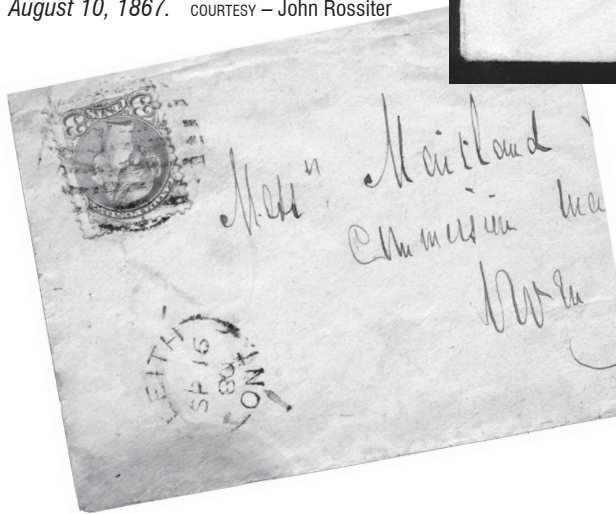 August 10, 1867. COURTESY – John Rossiter
Messrs. Maitland
Commission
LEITH ONT
SP 16
80